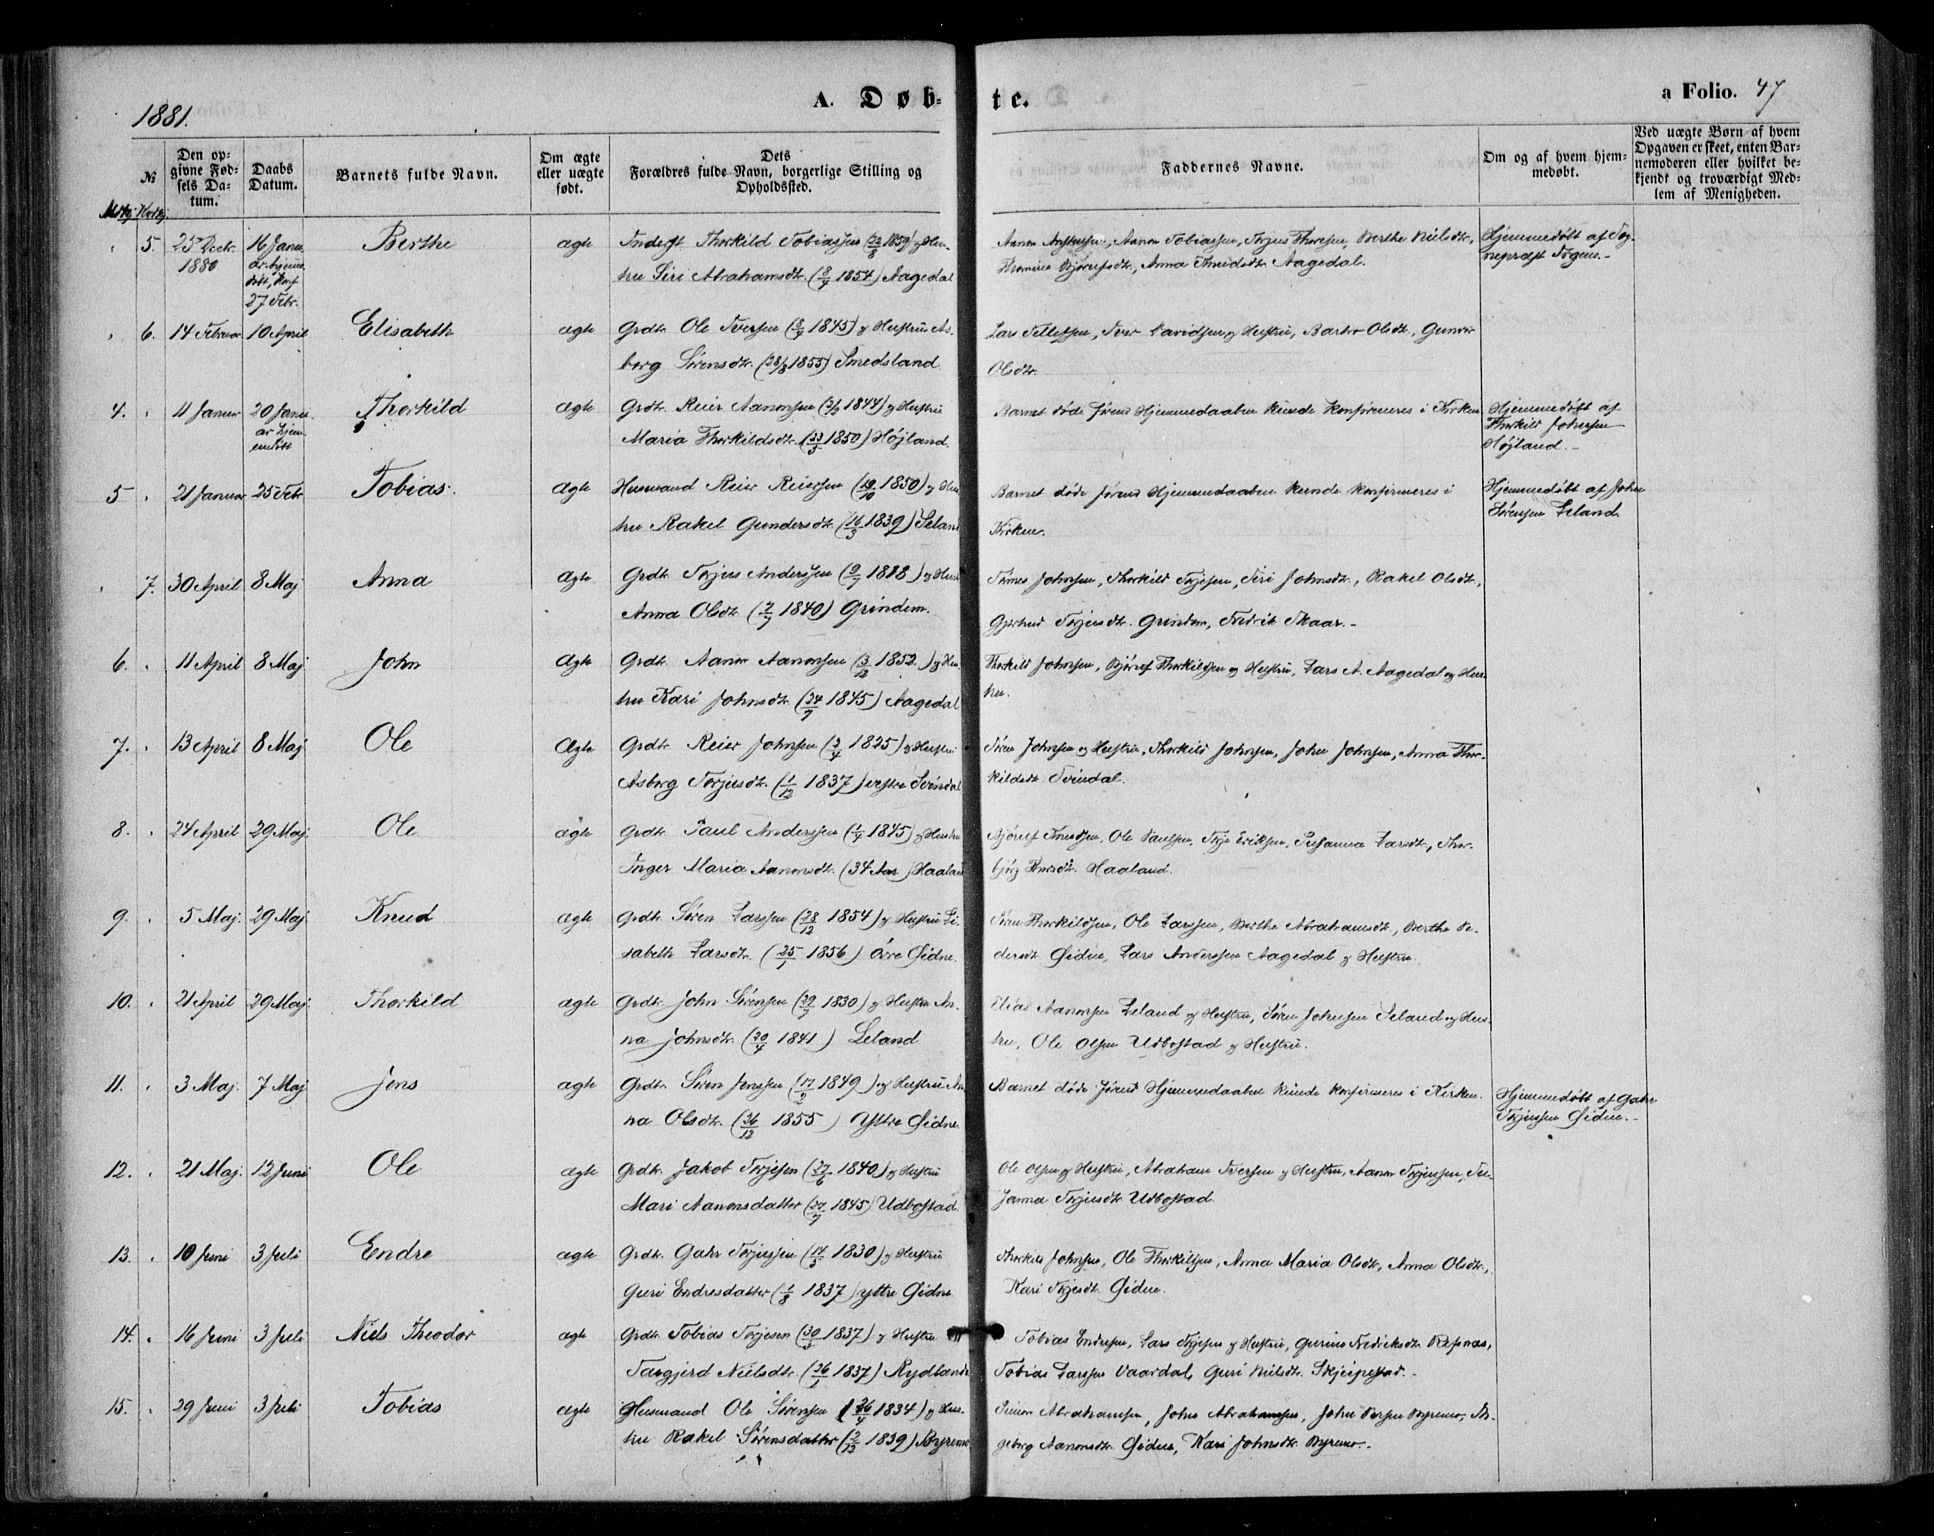 1881.
A. Døb-
te.
a Folio. 47
№
Den op-
givne Fød-
sels Da-
tum.
Daabs
Datum.
Barnets fulde Navn.
Om ægte
eller uægte
født.
Dets
Forældres fulde Navn, borgerlige Stilling og
Opholdssted.
Faddernes Navne.
Om og af hvem hjem-
medøbt.
Ved uægte Børn af hvem
Opgaven er skeet, enten Bar-
nemoderen eller hvilket be-
kjendt og troværdigt Med-
lem af Menigheden.
5. 25 Decbr. 1880 16 Janu-
ar hjemme-
døbt,
27 Febr. Berthe ægte Thorkild Tobiassen 1859 og Hu-
stru Siri Abrahamsdtr. 1857) Aagedal
Aanon Tobiassen, Berthe Nilsdtr,
Anna Aagedal.
Hjemmedøbt af Sog-
nepræst
6. 14 Februar 10 April Elisabeth ægte Grdbr. Ole Iversen 1845) og Hustru As-
borg Sørensdtr. (28/3 1855) Smedsland.
Lars Tellefsen, Iver Davidsen og Hustru, Olsdtr., Gunvor
Olsdtr.
4. 11 Januar 20 Janu-
ar hjem-
medøbt Thorkild ægte Grdbr. Reier Aanonsen 1844) og Hustru
Maria Thorkildsdtr. (23/3 1850) Højland.
Barnet døde førend Hjemmedaaben kunde konfirmeres i Kirken
Hjemmedøbt af
Thorkild Johnsen
Højland.-
5. 21 Januar 25 Febr Tobias. ægte Husmand Reier Reiersen (19/10 1850) og Hu-
stru Rakel Gundersdtr. (16/3 1839) Leland
Barnet døde førend Hjemmedaaben kunde konfirmeres i
Kirken.
Hjemmedøbt af John
Sørensen Leland
7. 30 April 8 Maj Anna ægte Grdbr. Torjus Anderssen og Hustru
Anna Olsdtr. (2/7 1840) Grindem.
Johnsen, Thorkild Torjesen, Siri Johnsdtr., Rakel Olsdtr.,
Gjertrud Torjusdtr. Grindem, Fredrik Skaar.-
6. 11 April 8 Maj John ægte Grdbr. Aanon Aanonsen (3/12 1852) og Hu-
stru Kari Johnsdtr. (24/7 1845) Aagedal
Thorkild Johnsen, Bjorulf Thorkildsen og Hustru, Lars A. Aagedal og Hus-
tru.
7. 13 April 8 Maj Ole ægte Grdbr. Reier Johnsen (2/4 1825) og Hustru
Asborg Torjusdtr. (1/12 1837) vestre Svindal
Søren Johnsen og Hustru, Thorkild Johnsen, John Johnsen, Anna Thor-
kildsdtr. Svindal.
8. 24 April 29 Maj Ole ægte Grdbr. Paul Anderssen (1/4 1845) og Hustru
Inger Maria Aanonsdtr. (34 Aar) Haaland
Ole Paulsen, Eriksen, Susanna Larsdtr., Thor-
bjørg Haaland.
9. 5 Maj. 29 Maj Knud ægte Grdbr. Søren Larssen (28/12 1854) og Hustru Li-
sabeth Larsdtr. (25/1 1856) øvre Øidne.
Søren Thorkildsen, Ole Larssen, Berthe Abrahamsdtr, Berthe Pe-
dersdtr. Øidne, Lars Anderssen Aagedal og Hustru.
10. 21 April 29 Maj Thorkild ægte Grdbr. John Sørensen (29/7 1830) og Hustru An-
na Johnsdtr. (20/4 1841) Leland
Elias Aanonsen Leland og Hustru, Søren Johnsen Leland og Hus-
tru, Ole Olsen Udbostad og Hustru.
11. 3 Maj. 7 Maj Jens ægte Grdbr. Søren Jenssen (17/2 1849) og Hustru An-
na Olsdtr. (26/12 1855) Ytre Øidne.
Barnet døde førend Hjemmedaaben kunde konfirmeres i Kirken.
Hjemmedøbt af Gahr
Torjussen Øidne.-
12. 21 Maj. 12 Juni Ole ægte Grdbr. Jakob Torjesen (27/6 1840) og Hustru
Mari Aanonsdatter (27/7 1845) Udbostad
Ole Olsen og Hustru, Abraham Iversen og Hustru, Aanon Torjussen, Su-
sanna Torjusdtr. Udbostad.
13. 10 Juni 3 Juli Endre ægte Grdbr. Gahr Torjussen (14/5 1830) og Hustru
Guri Endresdatter (1/8 1837) yttre Øidne.
Thorkild Johnsen, Ole Thorkildsen, Anna Maria Olsdtr., Anna Olsdtr.,
Kari Torjesdtr. Øidne.
14. 16 Juni 3 Juli Niels Theodor ægte Grdbr. Tobias Torjesen 1837) og Hustru
Targjerd Nielsdtr. 1837) Rydland
Tobias Endresen, Lars Torjesen og Hustru, Gurine Fredriksdtr. Refsnæs,
Tobias Larssen Vaardal, Guri Nilsdtr. Skjeipestad.-
15. 29 Juni 3 Juli Tobias ægte Husmand Ole Sørensen (26/4 1834) og Hus-
tru Rakel Sørensdatter (2/12 1839) Byremo
Simon Abrahamsen, John Abrahamsen, John Byremo, In-
geborg Aanonsdtr. Øidne, Kari Johnsdtr. Byremo.-